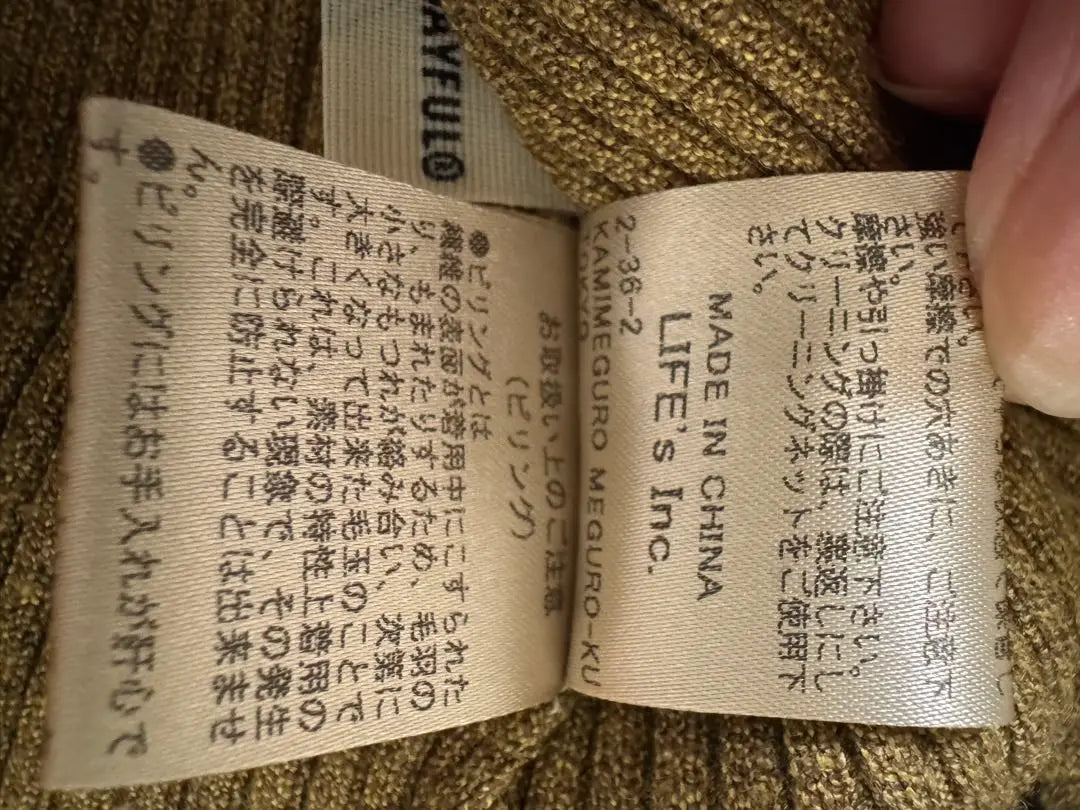 強い摩擦での穴あきに、ご注意下
さい。
摩擦や引っ掛けにご注意下さい。
クリーニングの際は、裏返しにし
てクリーニングネットをご使用下
さい。
MADE IN CHINA
LIFE's Inc.
2-36-2
KAMIMEGURO MEGURO-KU
お取扱い上のご注意
(ピリング)
●ピリングとは
繊維の表面が着用中にこすられた
り、もまれたりするため、毛羽の
小さなもつれが絡み合い、次第に
大きくなって出来た毛玉のことで
す。これは、素材の特性上着用の
際避けられない現象で、その発生
を完全に防止することは出来ませ
ん。
●ピリングにはお手入れが肝心で
す。